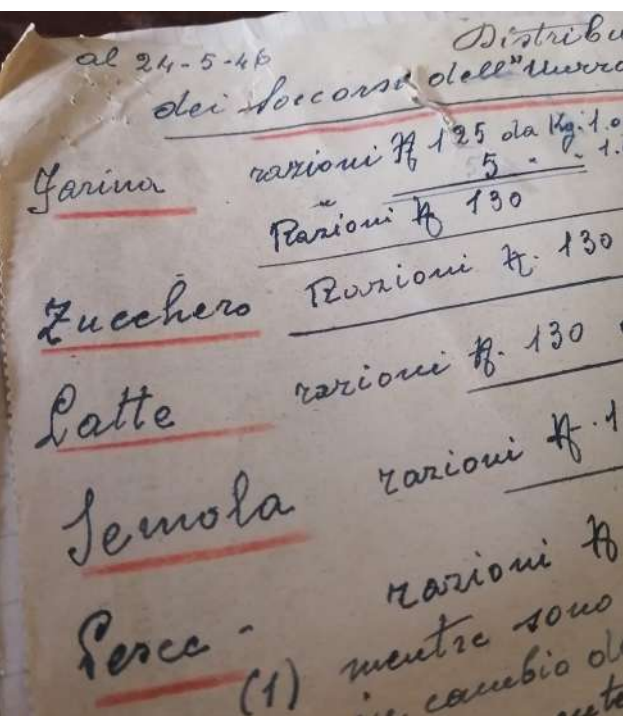 al 24-5-46
Distribu
dei Soccorsi dell'"Unrra
Farina razioni N 125 da Kg. 1.0
5 " " 1.
Razioni N 130
Zucchero Razioni N. 130
Latte razioni N. 130
Semola razioni N. 1
Pesce - razioni N
(1) mentre sono
in cambio d